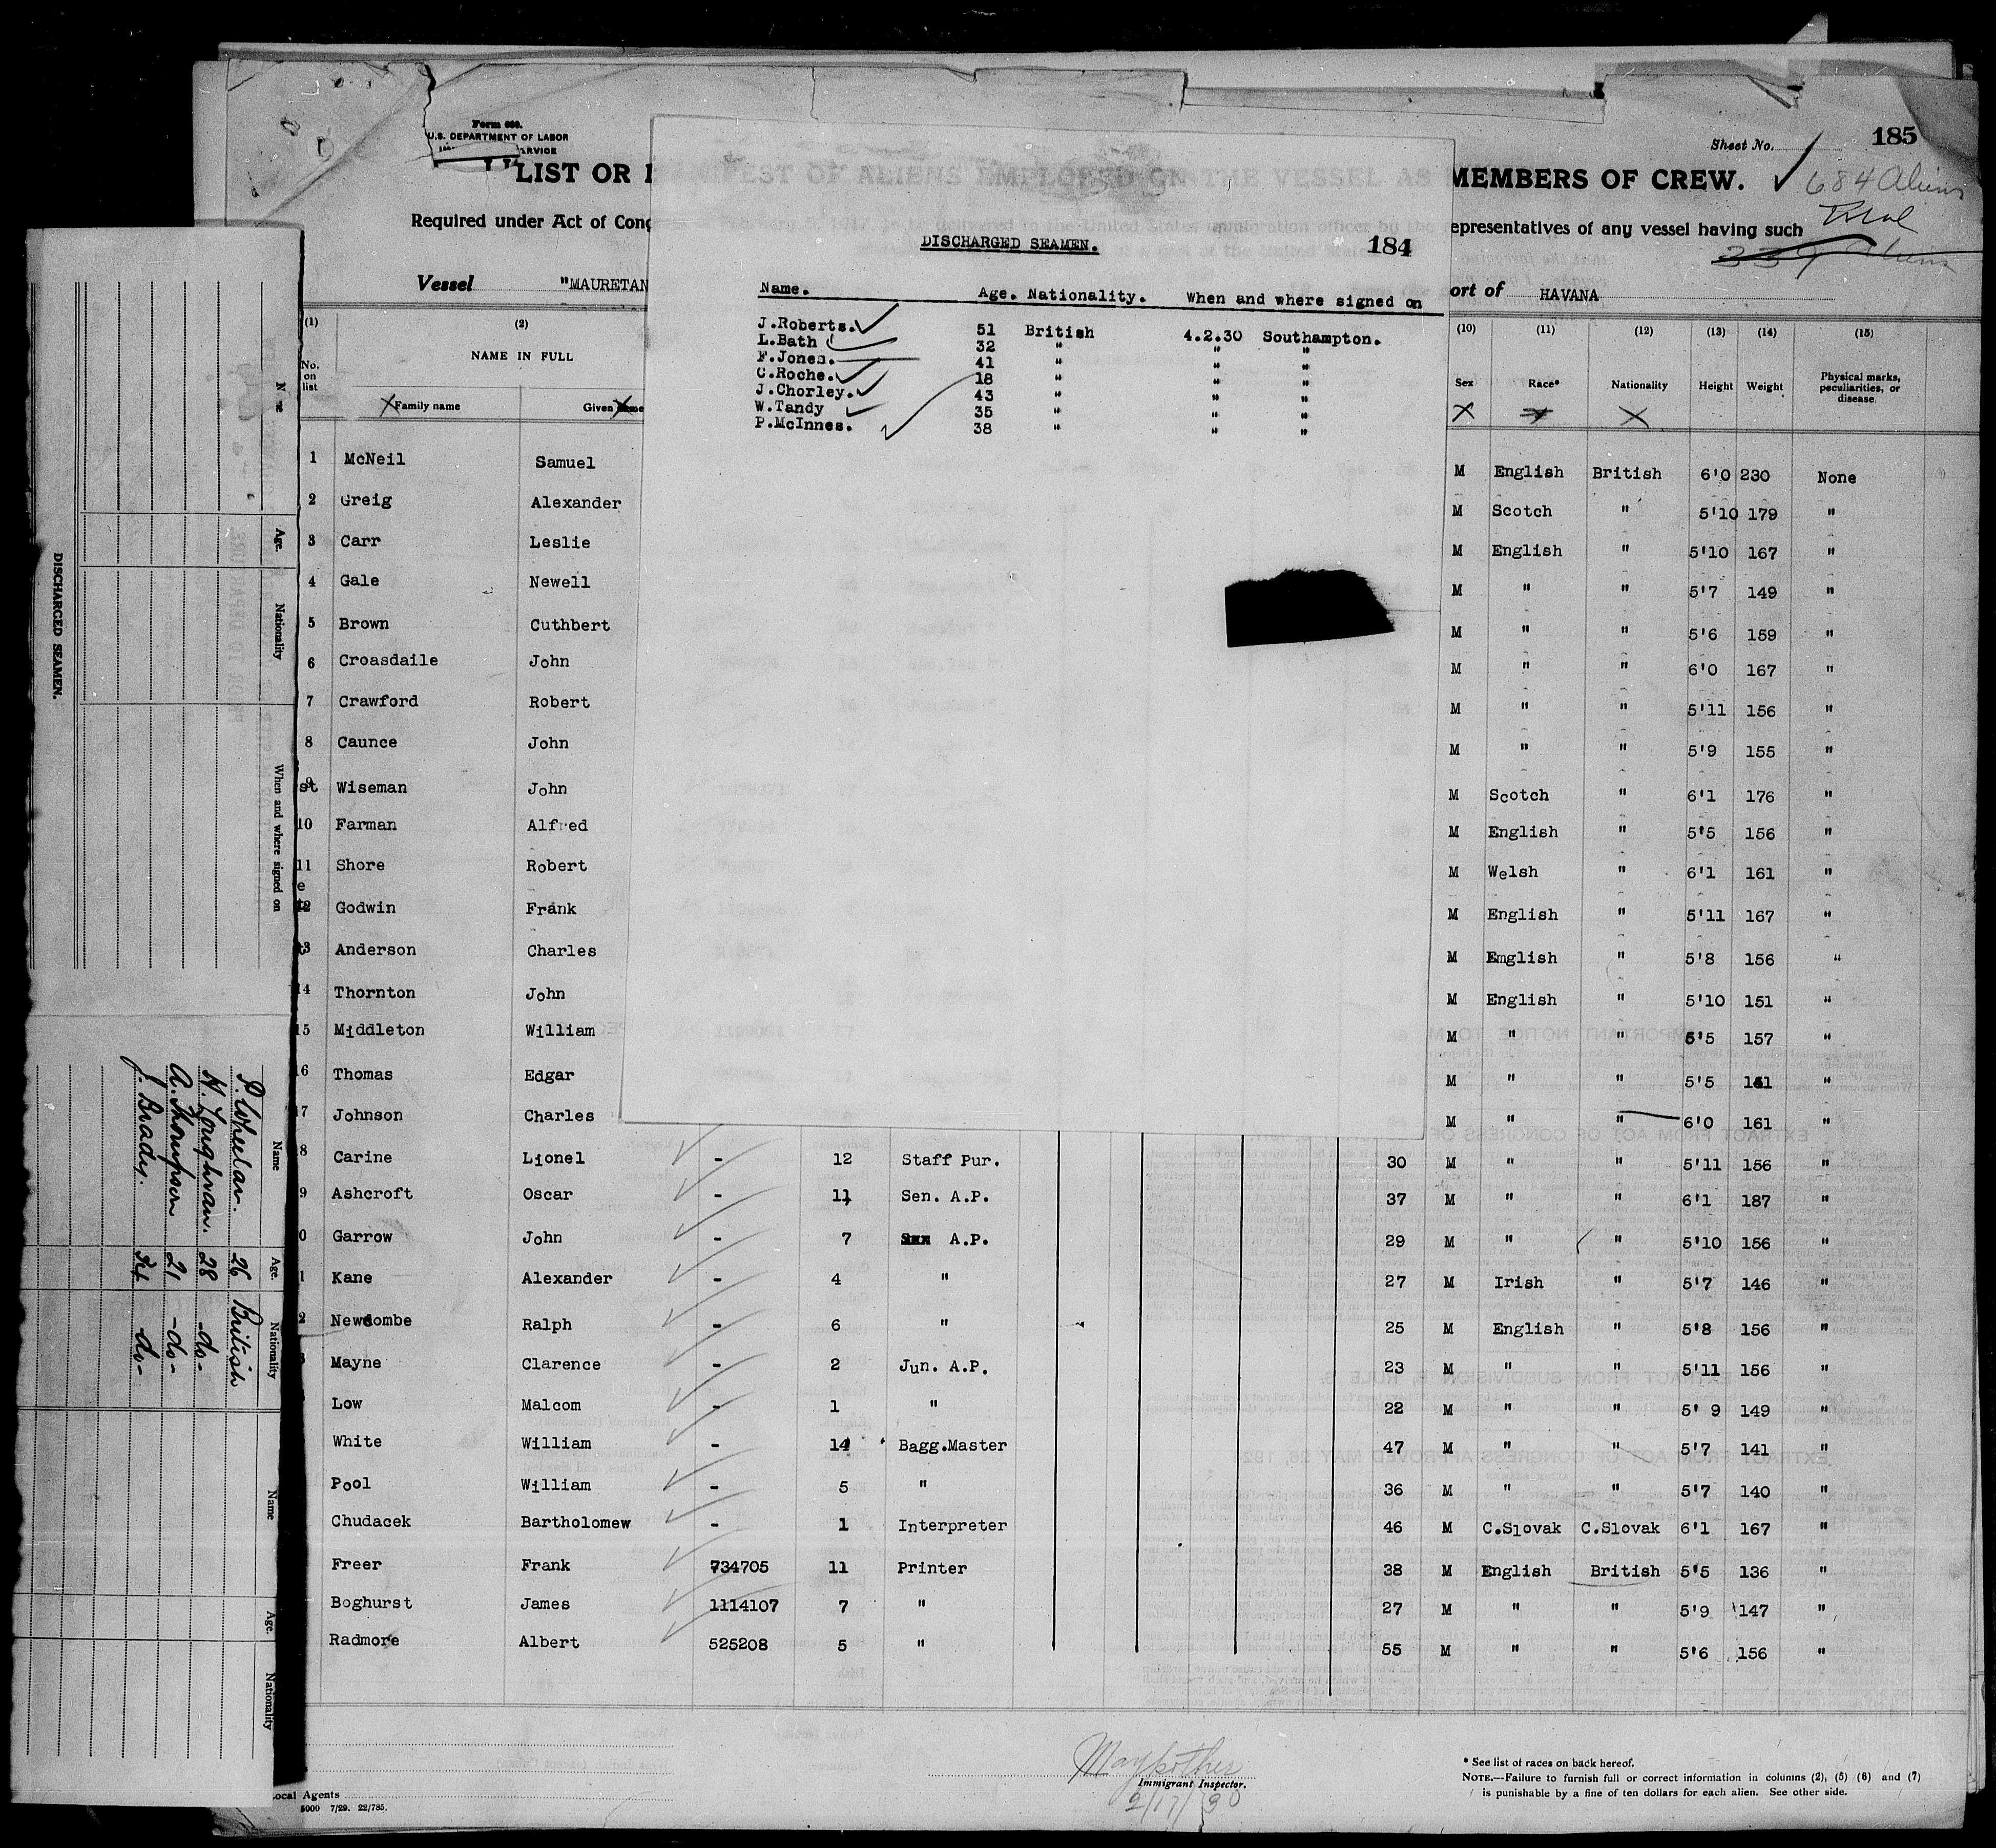 Form 680.
U.S. DEPARTMENT OF LABOR
Sheet No. 185
LIST OR MEMBERS OF CREW. 684 Aliens
Total
Required under Act of Cong epresentatives of any vessel having such
Vessel "MAURETAN ort of HAVANA
184
DISCHARGED SEAMEN.
Name. Age. Nationality. When and where signed on
J.Roberts. 51 British 4.2.30 Southampton.
L.Bath 32 " " "
F.Jones. 41 " " "
C.Roche. 18 " " "
J.Chorley. 43 " " "
W.Tandy 35 " " "
P.McInnes. 38 " " "
(1) (2) (10) (11) (12) (13) (14) (15)
No. on list NAME IN FULL Sex Race* Nationality Height Weight Physical marks, peculiarities, or disease.
Family name Given name
1 McNeil Samuel M English British 6'0 230 None
2 Greig Alexander M Scotch " 5'10 179 "
3 Carr Leslie M English " 5'10 167 "
4 Gale Newell M " " 5'7 149 "
5 Brown Cuthbert M " " 5'6 159 "
6 Croasdaile John M " " 6'0 167 "
7 Crawford Robert M " " 5'11 156 "
8 Caunce John M " " 5'9 155 "
9 Wiseman John M Scotch " 6'1 176 "
10 Farman Alfred M English " 5'5 156 "
11 Shore Robert M Welsh " 6'1 161 "
12 Godwin Frank M English " 5'11 167 "
13 Anderson Charles M English " 5'8 156 "
14 Thornton John M English " 5'10 151 "
15 Middleton William M " " 5'5 157 "
6 Thomas Edgar M " " 5'5 "
7 Johnson Charles M " " 6'0 161 "
8 Carine Lionel - 12 Staff Pur. 30 M " " 5'11 156 "
9 Ashcroft Oscar - 11 Sen. A.P. 37 M " " 6'1 187 "
0 Garrow John - 7 A.P. 29 M " " 5'10 156 "
1 Kane Alexander - 4 " 27 M Irish " 5'7 146 "
2 Newcombe Ralph - 6 " 25 M English " 5'8 156 "
3 Mayne Clarence - 2 Jun. A.P. 23 M " " 5'11 156 "
Low Malcom - 1 " 22 M " " 5' 9 149 "
White William - 14 Bagg.Master 47 M " " 5'7 141 "
Pool William - 5 " 36 M " " 5'7 140 "
Chudacek Bartholomew - 1 Interpreter 46 M C.Slovak C.Slovak 6'1 167 "
Freer Frank 734705 11 Printer 38 M English British 5'5 136 "
Boghurst James 1114107 7 " 27 M " " 5'9 147 "
Radmore Albert 525208 5 " 55 M " " 5'6 156 "
Immigrant Inspector.
2/17/30
* See list of races on back hereof.
NOTE.—Failure to furnish full or correct information in columns (2), (5) (6) and (7)
is punishable by a fine of ten dollars for each alien. See other side.
ocal Agents
5000 7/29. 22/785.
DISCHARGED SEAMEN.
Age. Nationality When and where signed on
Name Age. Nationality
P. Whelan. 26 British
H. Loughran. 28 -do-
A. Thompson 21 -do-
J. Brady. 34 -do-
Name Age. Nationality